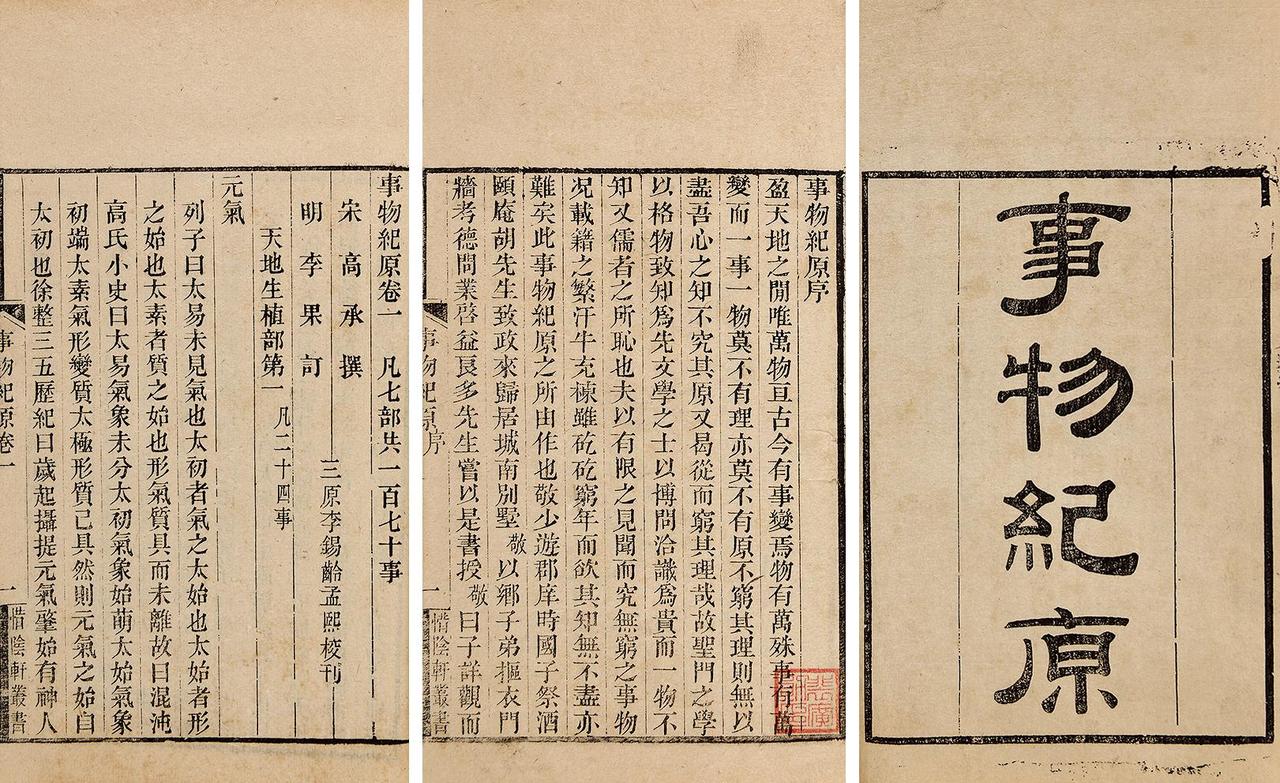 事物紀原
事物紀原序
盈天地之閒唯萬物亘古今有事變焉物有萬殊事有萬
變而一事一物莫不有理亦莫不有原不窮其理則無以
盡吾心之知不究其原又曷從而窮其理哉故聖門之學
以格物致知爲先文學之士以博問洽識爲貴而一物不
知又儒者之所恥也夫以有限之見聞而究無窮之事物
况載籍之繁汗牛充棟雖矻矻窮年而欲其知無不盡亦
難矣此事物紀原之所由作也敬少遊郡庠時國子祭酒
頤庵胡先生致政來歸居城南別墅敬以鄉子弟摳衣門
牆考德問業啓益良多先生嘗以是書授敬曰子詳觀而
事物紀原序 一 惜陰軒叢書
事物紀原卷一 凡七部共一百七十事
宋高承撰
明李果訂 三原李錫齡孟熙校刊
天地生植部第一 凡二十四事
元氣
列子曰太易未見氣也太初者氣之太始也太始者形
之始也太素者質之始也形氣質具而未離故曰混沌
高氏小史曰太易氣象未分太初氣象始萌太始氣象
初端太素氣形變質太極形質已具然則元氣之始自
太初也徐整三五歷紀曰歲起攝提元氣肇始有神人
事物紀原卷一 一 惜陰軒叢書